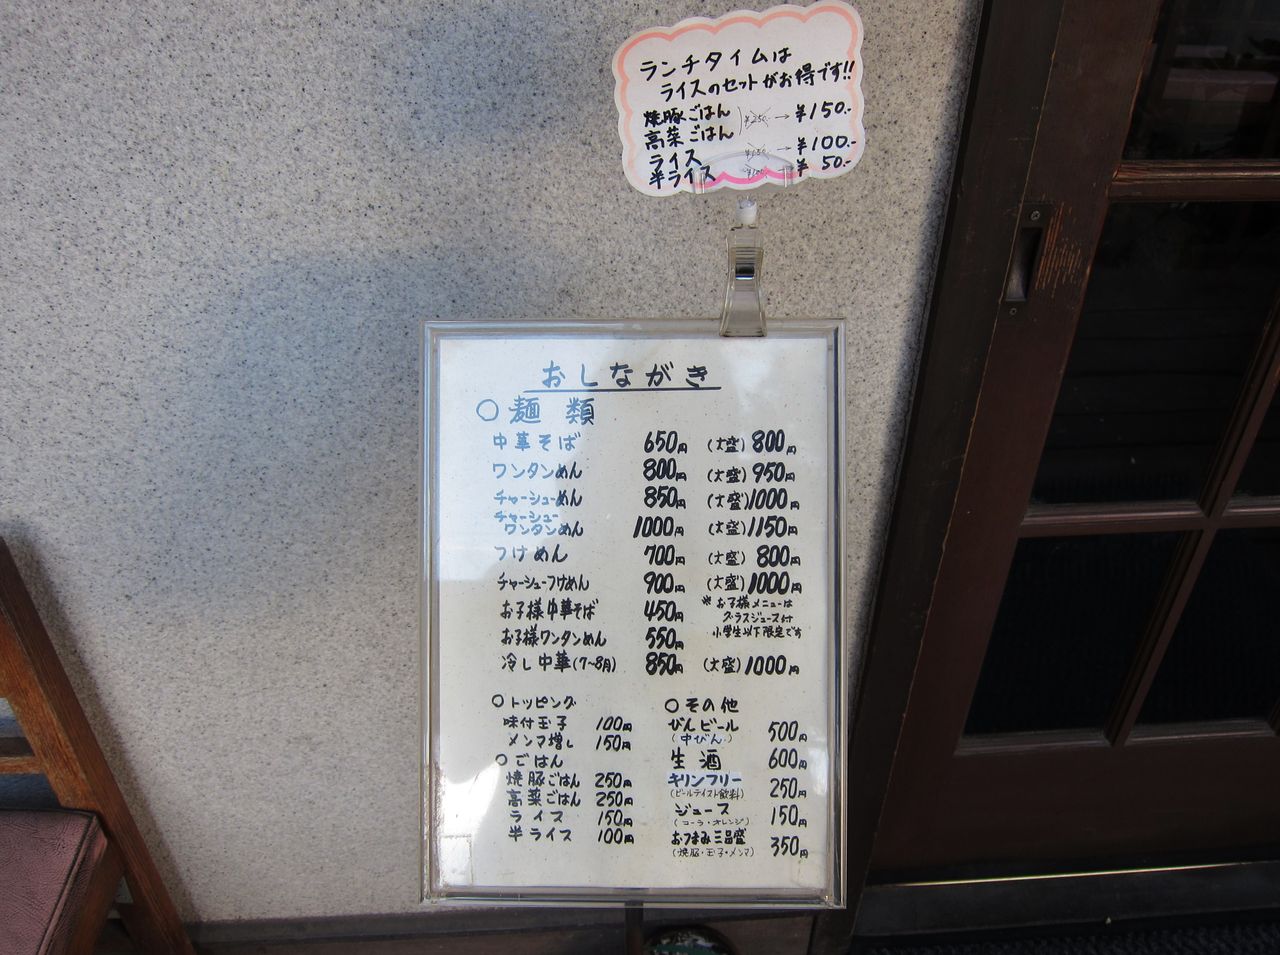 ランチタイムは
ライスのセットがお得です!!
焼豚ごはん
高菜ごはん ¥250 → ¥150.-
ライス ¥150 → ¥100.-
半ライス ¥100 → ¥50.-
おしながき
○麺類
中華そば 650円 (大盛) 800円
ワンタンめん 800円 (大盛) 950円
チャーシューめん 850円 (大盛) 1000円
チャーシュー
ワンタンめん 1000円 (大盛) 1150円
つけめん 700円 (大盛) 800円
チャーシューつけめん 900円 (大盛) 1000円
お子様中華そば 450円
お子様ワンタンめん 550円
※お子様メニューは
グラスジュース付
小学生以下限定です
冷し中華(7~8月) 850円 (大盛) 1000円
○トッピング
味付玉子 100円
メンマ増し 150円
○ごはん
焼豚ごはん 250円
高菜ごはん 250円
ライス 150円
半ライス 100円
○その他
びんビール 500円
(中びん)
生酒 600円
キリンフリー 250円
(ビールテイスト飲料)
ジュース 150円
(コーラ・オレンジ)
おつまみ三品盛 350円
(焼豚・玉子・メンマ)